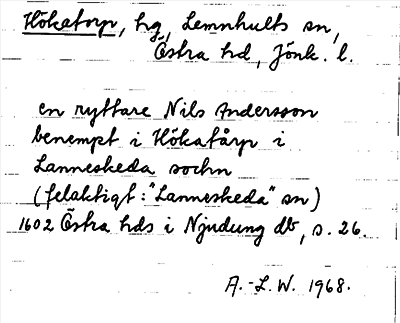 Hökatorp, hg, Lemnhults sn,
Östra hd, Jönk. l.
en ryttare Nils Andersson
benempt i Hökatårp i
Lanneskeda sochn
(felaktigt: "Lanneskeda" sn)
1602 Östra hds i Njudung db, s. 26.
A.-L.W. 1968.